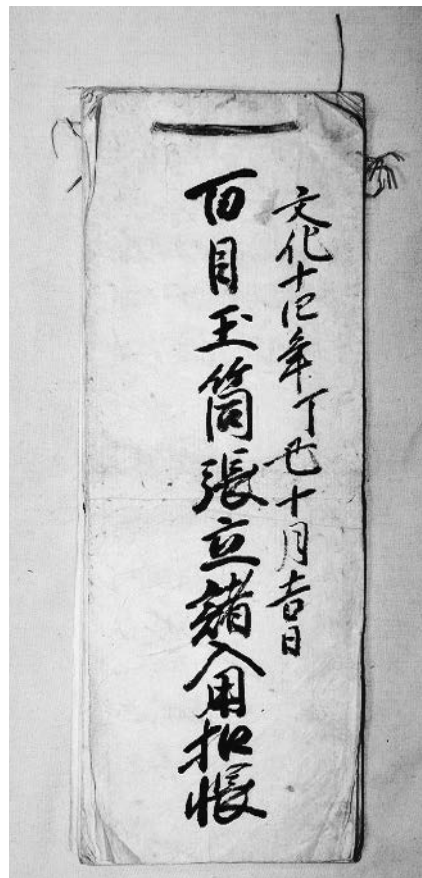 文化十四年丁丑十月吉日
百目玉筒張立諸入用扣帳